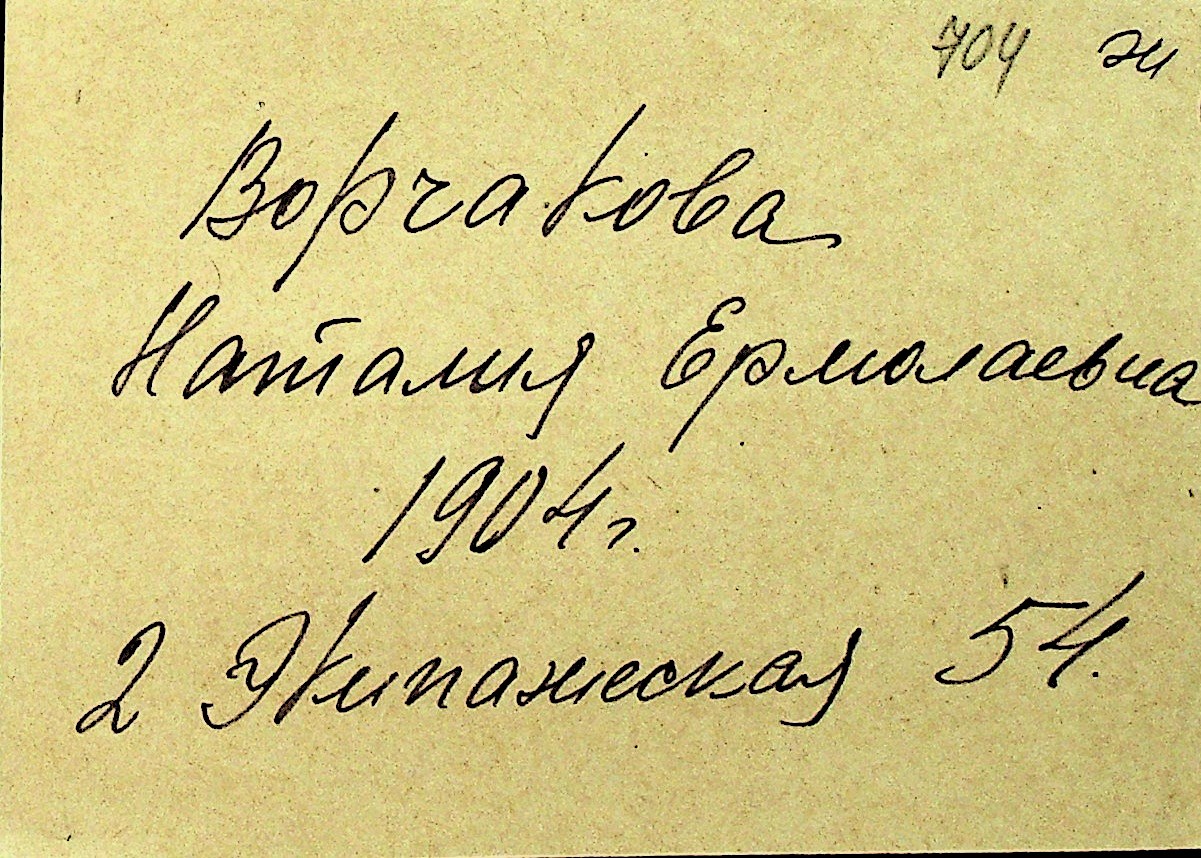 704 ж
Ворчакова
Наталия Ермолаевна
1904 г.
2 Экипажеская 54.